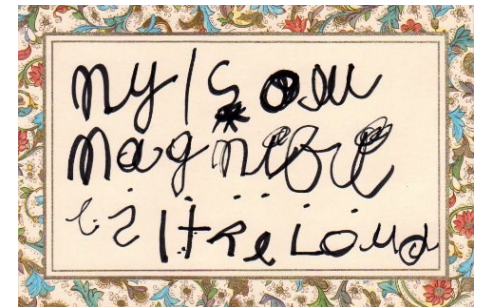 My | Soul
magnifie
s | the Lord